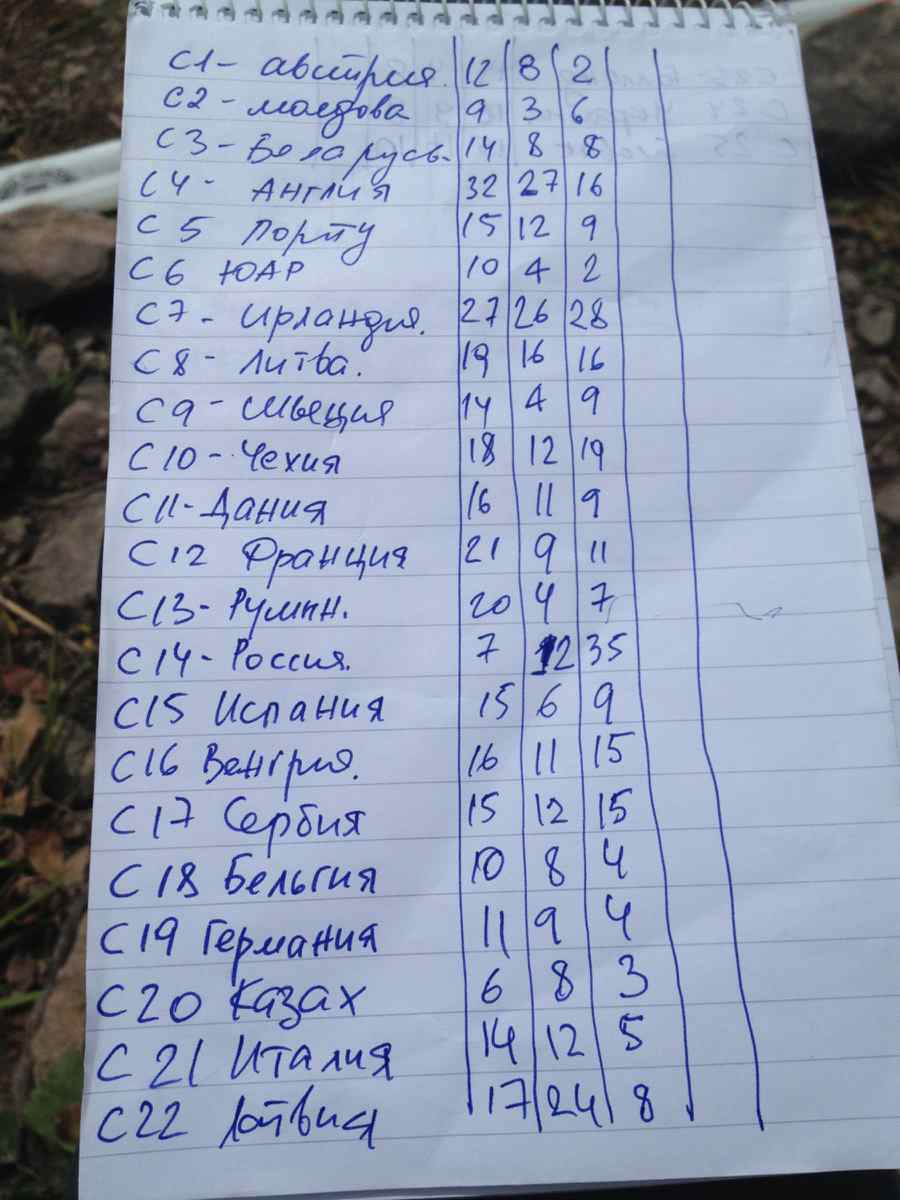 С1- австрия. 12 8 2
С2 - молдова 9 3 6
С3 - Беларусь. 14 8 8
С4 - Англия 32 27 16
С5 Порту 15 12 9
С6 ЮАР 10 4 2
С7 - Ирландия. 27 26 28
С8 - Литва. 19 16 16
С9 - Швеция 14 4 9
С10 - Чехия 18 12 19
С11 - Дания 16 11 9
С12 Франция 21 9 11
С13 - Румын. 20 4 7
С14 - Россия. 7 12 35
С15 Испания 15 6 9
С16 Венгрия. 16 11 15
С17 Сербия 15 12 15
С18 Бельгия 10 8 4
С19 Германия 11 9 4
С20 Казах 6 8 3
С21 Италия 14 12 5
С22 Латвия 17 24 8